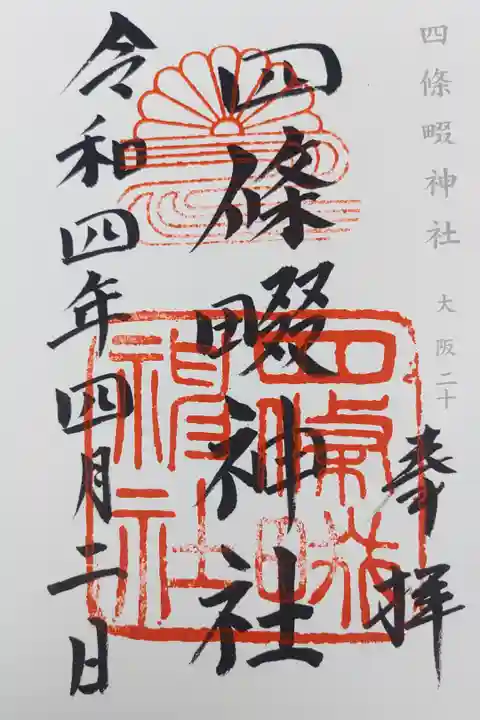 四條畷神社 大阪二十
奉拝
四條畷神社
令和四年四月二日
四條畷
神社